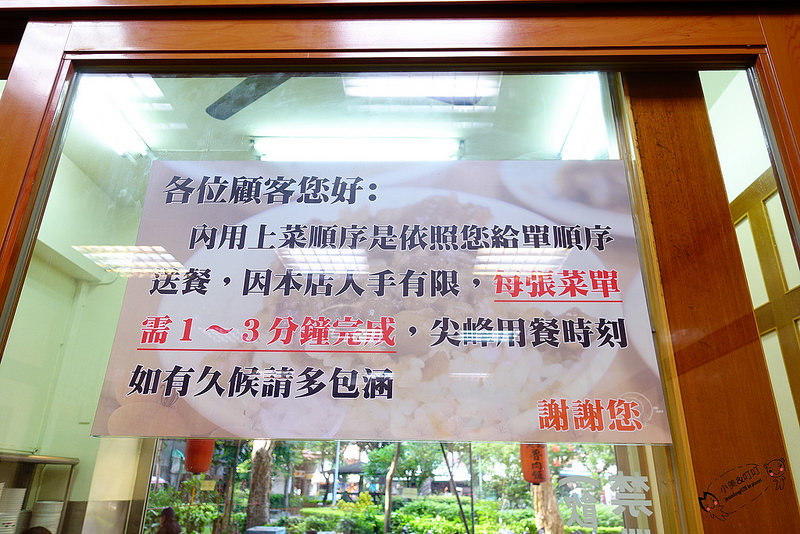 各位顧客您好：
內用上菜順序是依照您給單順序
送餐，因本店人手有限，每張菜單
需1～3分鐘完成，尖峰用餐時刻
如有久候請多包涵
謝謝您
魯肉飯
禁
歡
小美&叮叮